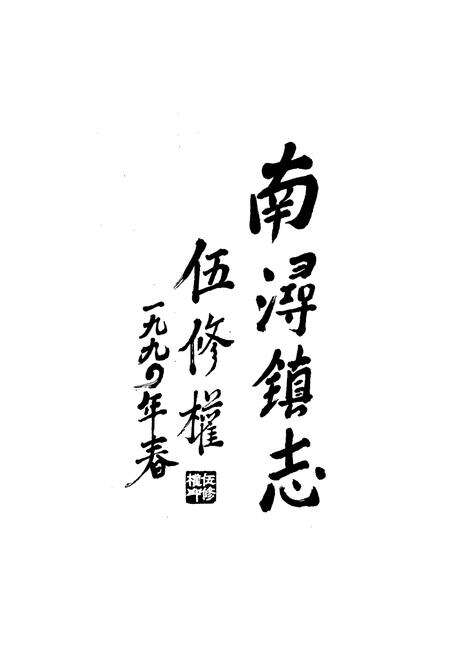 南潯鎮志
伍修權
一九九〇年春
伍修
權印